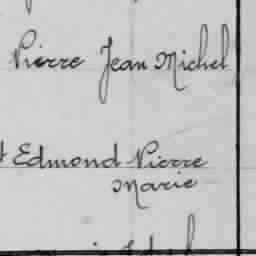 Pierre Jean Michel
Edmond Pierre
Marie